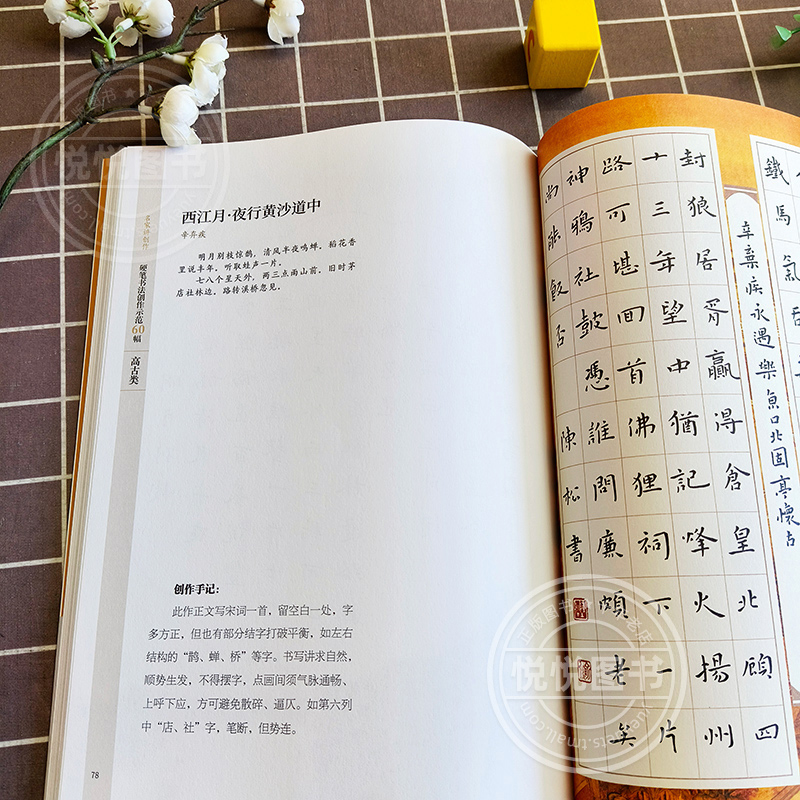 西江月·夜行黄沙道中
辛弃疾
明月别枝惊鹊，清风半夜鸣蝉，稻花香
里说丰年，听取蛙声一片。
七八个星天外，两三点雨山前，旧时茅
店社林边，路转溪桥忽见。
名家讲创作
硬笔书法创作示范60幅
高古类
创作手记：
此作正文写宋词一首，留空白一处，字
多方正，但也有部分结字打破平衡，如左右
结构的“鹊、蝉、桥”等字。书写讲求自然，
顺势生发，不得摆字，点画间须气脉通畅、
上呼下应，方可避免散碎、逼仄。如第六列
中“店、社”字，笔断，但势连。
78
鐵馬氣吞
辛棄疾永遇樂京口北固亭懷古
封狼居胥贏得倉皇北顧四
十三年望中猶記烽火揚州
路可堪回首佛狸祠下一片
神鴉社鼓憑誰問廉頗老矣
尚能飯否
陳松書
悦悦图书
正版图书
老店
悦悦图书